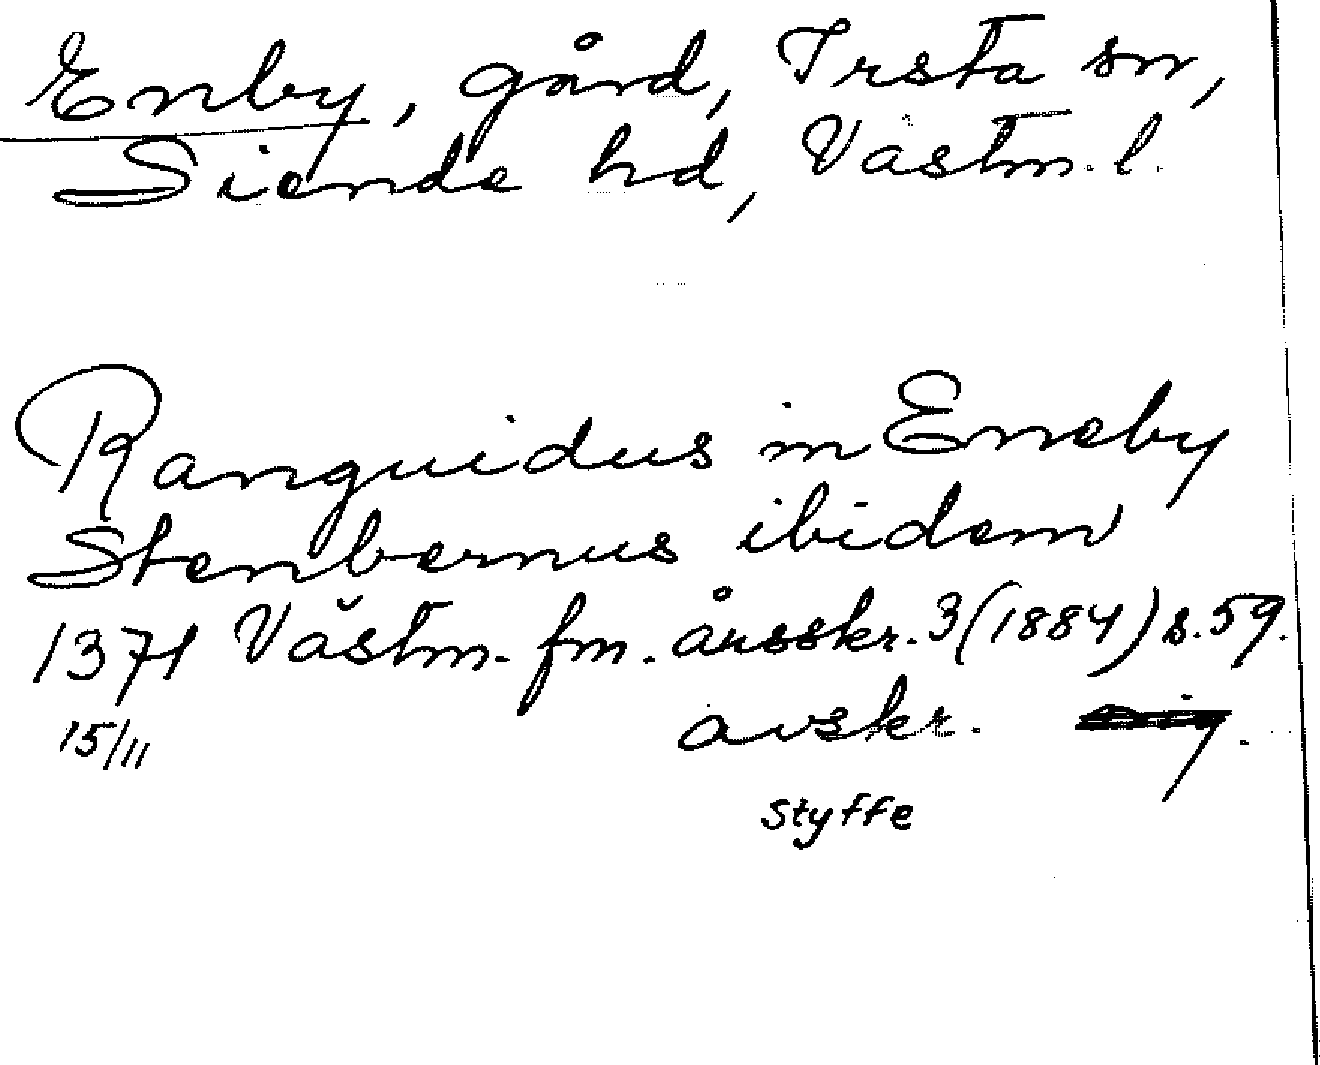 Enby, gård, Irsta sn,
Siende hd, Västm. l.
Ranguidus in Eneby
Stenbernus ibidem
1371 Västm. fm. årsskr. 3 (1884) s. 59.
15/11 avskr.
Styffe